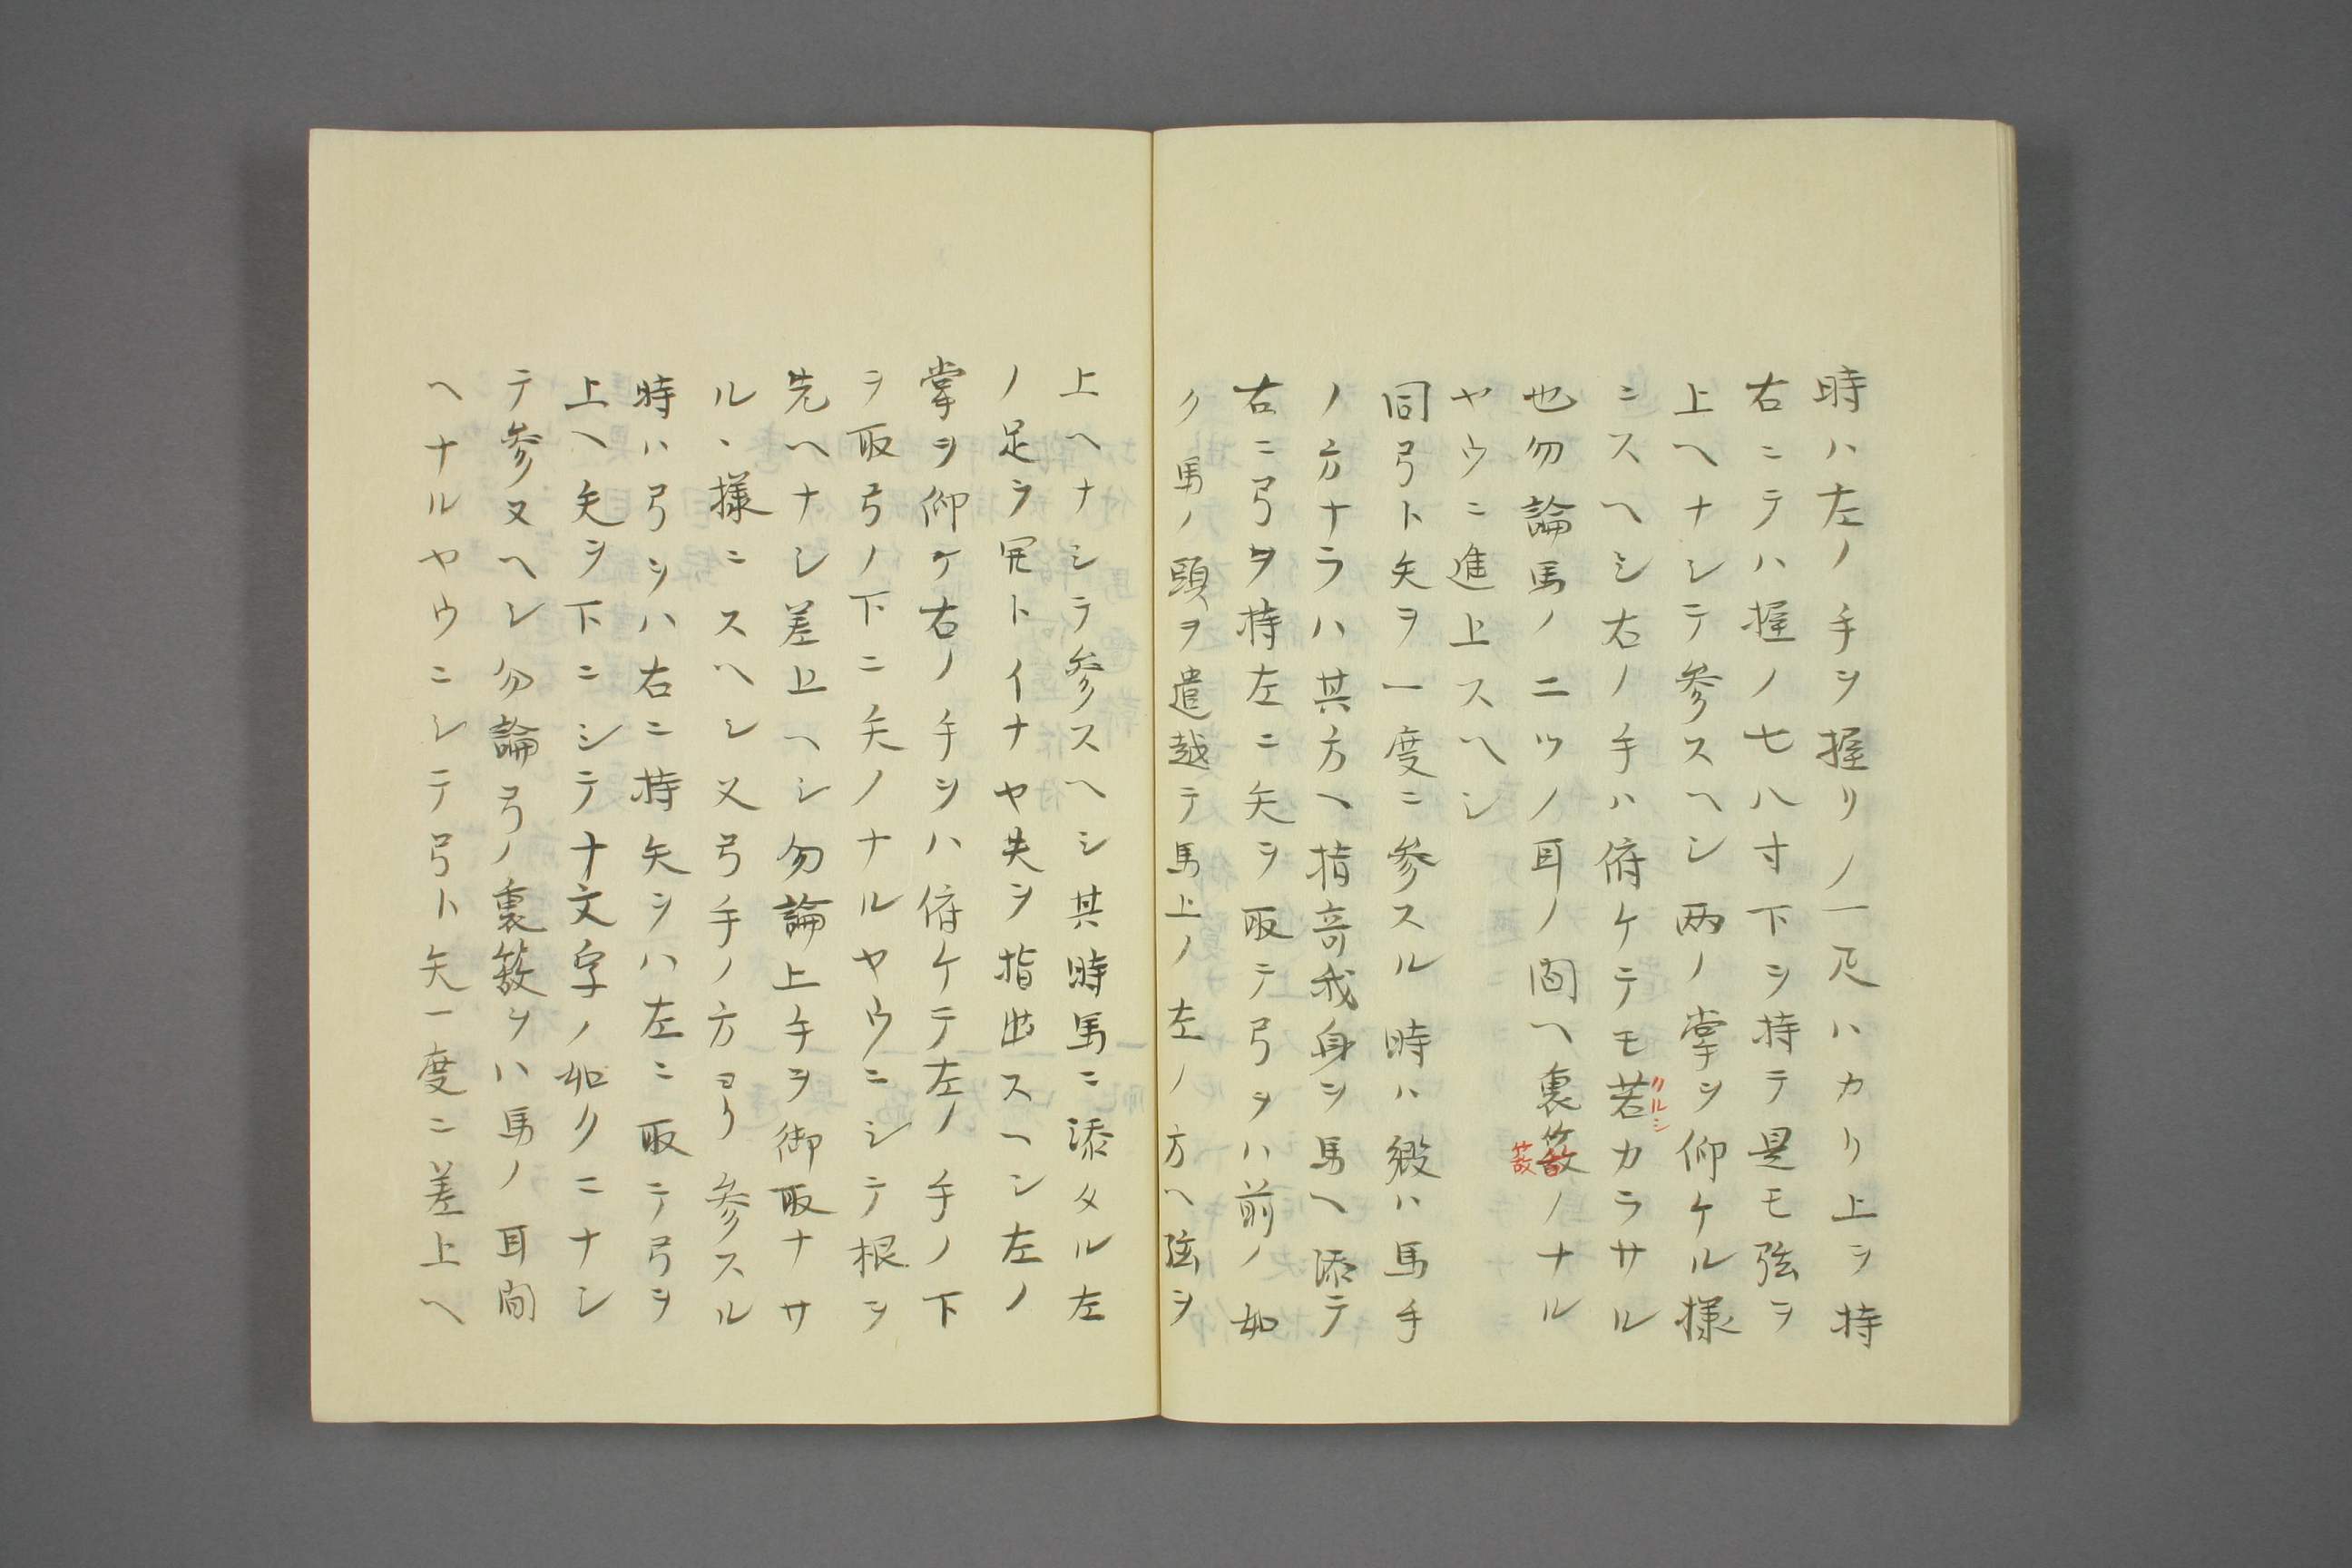 時ハ左ノ手ヲ握リノ一尺ハカリ上ヲ持
右ニテハ握ノ七八寸下ヲ持テ是モ弦ヲ
上ヘナシテ参スヘシ両ノ掌ヲ仰ケル様
ニスヘシ右ノ手ハ俯ケテモ若カラサル
クルシ
也勿論馬ノ二ツノ耳ノ間ヘ裏簸ノナル
ヤウニ進上スヘシ
同弓ト矢ヲ一度ニ参スル時ハ縦ハ馬手
ノ方ナラハ其方ヘ指寄我身ヲ馬ヘ添テ
右ニ弓ヲ持左ニ矢ヲ取テ弓ヲハ前ノ如
ク馬ノ頭ヲ遣越テ馬上ノ左ノ方ヘ弦ヲ
上ヘナシテ参スヘシ其時馬ニ添タル左
ノ足ラ宛トイナヤ失ヲ指出スヘシ左ノ
掌ヲ仰ケ右ノ手ヲハ俯ケテ左ノ手ノ下
ヲ取弓ノ下ニ矢ノナルヤウニシテ根ヲ
先ヘナシ差上ヘシ勿論上手ヲ御取ナサ
ルヽ様ニスヘシ又弓手ノ方ヨリ参スル
時ハ弓ヲハ右ニ持矢ヲハ左ニ取テ弓ヲ
上ヘ矢ヲ下ニシテ十文字ノ如クニナシ
テ参又ヘシ勿論弓ノ裏簸ヲハ馬ノ耳間
ヘナルヤウニシテ弓ト矢一度ニ差上ヘ